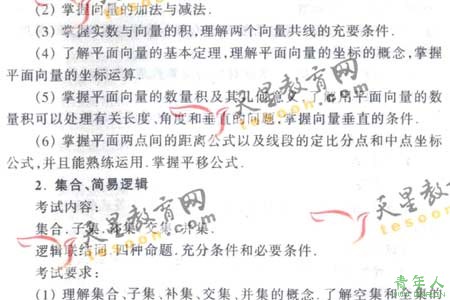 (2) 掌握向量的加法与减法.
(3) 掌握实数与向量的积,理解两个向量共线的充要条件.
(4) 了解平面向量的基本定理,理解平面向量的坐标的概念,掌握
平面向量的坐标运算.
(5) 掌握平面向量的数量积及其几何 用平面向量的数
量积可以处理有关长度、角度和垂直的问题,掌握向量垂直的条件.
(6) 掌握平面两点间的距离公式以及线段的定比分点和中点坐标
公式,并且能熟练运用.掌握平移公式.
2. 集合、简易逻辑
考试内容:
集合.子集.补集.交集.并集.
逻辑联结词.四种命题.充分条件和必要条件.
考试要求:
(1) 理解集合、子集、补集、交集、并集的概念.了解空集和全集的
天星教育网
tesoon.com
天星教育网
tesoon.com
天星教育网
tesoon.com
青年人